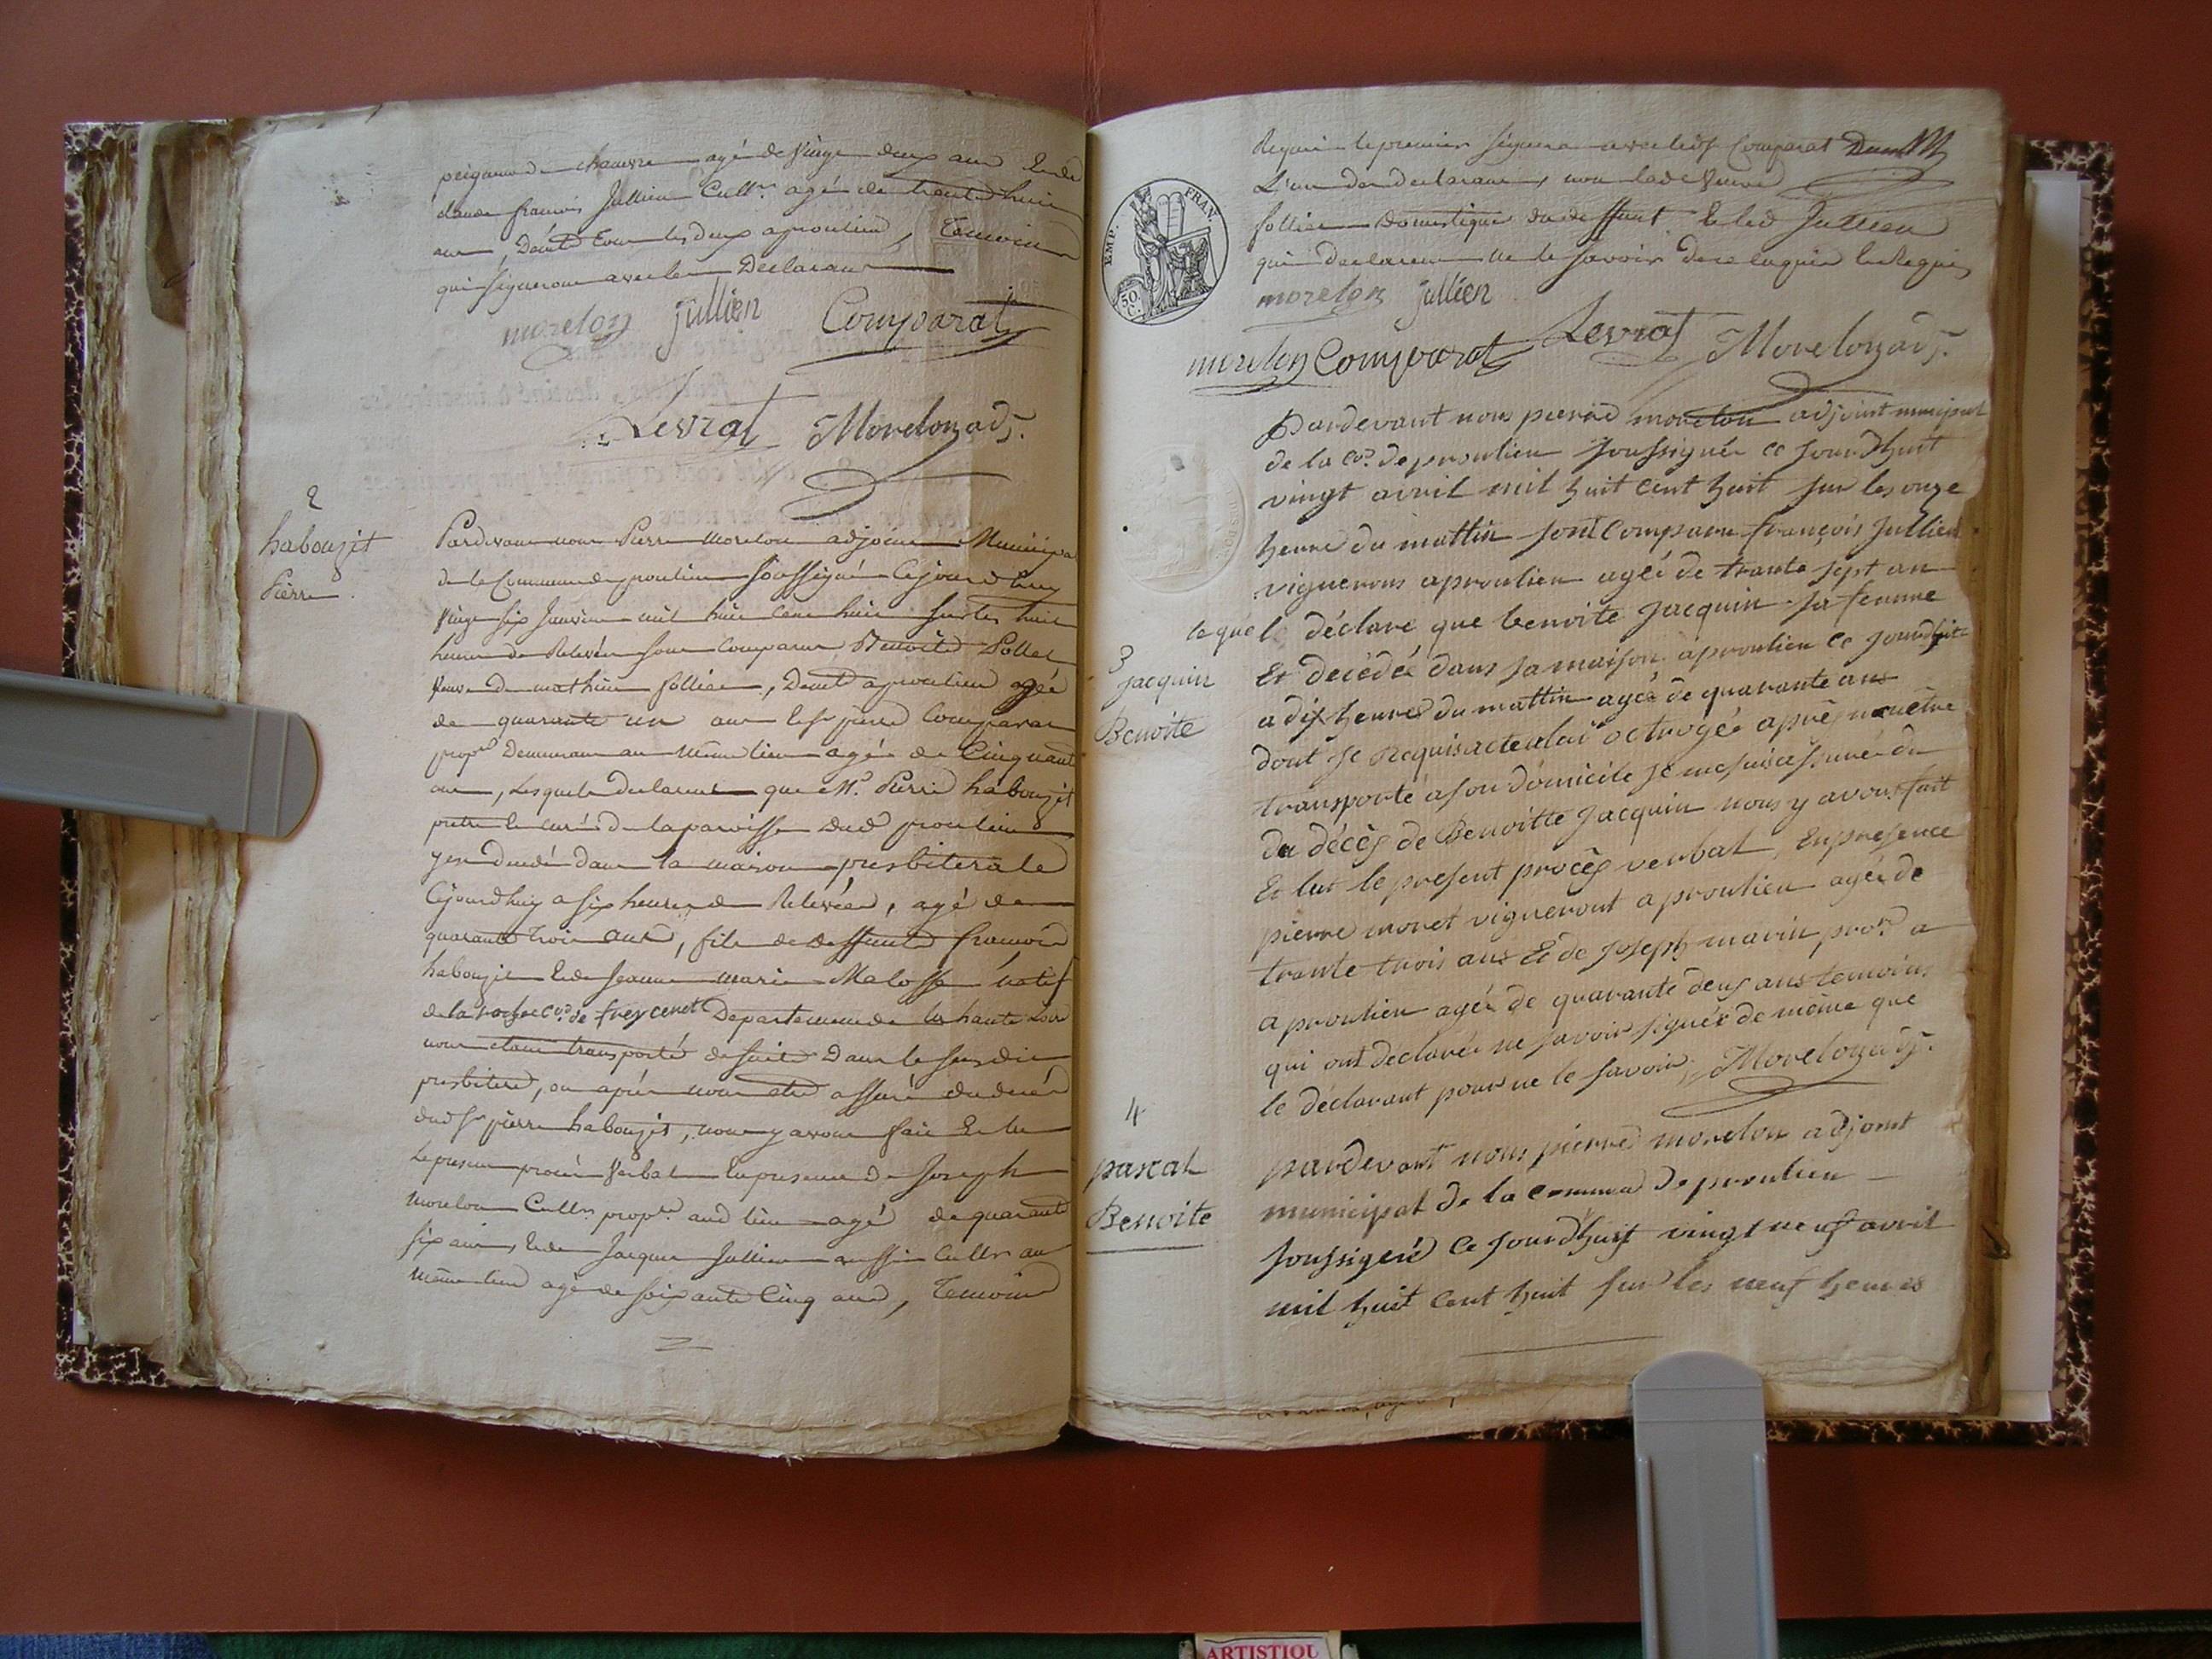 peigneur de chanvre agé de Vingt deux ans Et de
claude francois Jullien Cultr. agé de trente huit
ans, Demt tous les deux a proulieu, Temoins
qui signeront avec les Declarans
morelon jullien Comparat
Levrat Morelon adj.
2
habouzit
Pierre
Pardevant nous Pierre morelon adjoint Municipal
de la Commune de proulieu soussigné Cejourd'huy
Vingt six Janvier mil huit cent huit sur les huit
heures de Relevée sont Comparus Benoite Pollet
Veuve de mathieu follier, Demt a proulieu agée
de quarante un ans le sr pierre Comparat
propre Demeurant au même lieu agé de Cinquante
ans, Lesquels declarent que Mr. Pierre habouzit
pretre Et curé de la paroisse dud proulieu
y est Decedé dans la maison presbiterale
Cejourdhuy a six heures de Relevée, agé de
quarante trois ans, fils de deffunts francois
habouzit Et de Jeanne marie Malosse natif
de la roche cne. de freycenet Departement de la haute Loire
nous etant transporté de suite Dans le susdit
presbitere, ou après nous etre assuré du decés
dud sr pierre habouzit, nous y avons fait Et lu
Le present procès Verbal En presence de Joseph
morelon Cultr. propre. aud lieu agé de quarante
six ans, Et de Jacques Jullien aussi Cultr au
même lieu agé de soixante Cinq ans, Temoins
Requis le premier signera avec ledt Comparat
L'un des declarans, non lade Veuve
follier domestique du deffunt Et led Jullien
qui declarent ne le savoir de ce enquis Et Requis
morelon jullien
morelon Comparat Levrat Morelon adj.
EMP. FRAN.
50 C.
Pardevant nous pierre morelon adjoint municipal
de la cne. de proulieu soussignée ce jourd'huit
vingt avril mil huit cent huit sur les onze
heure du mattin sont comparu françois Jullien
vignerons a proulieu ageé de trante sept an
le quel déclare que benoite Jacquin sa femme
3
jacquin
Benoite
Et decédée dans sa maison a proulieu ce jourdhuit
a dix heures du mattin ageé de quarante ans
dont je requis acte a lui octroyée après mêtre
transporté a son domicile je me suis assurée du
du décès de Benoitte Jacquin nous y avons fait
Et lut le present procès verbal, En presence
pierre moret vigneront a proulieu ageé de
trante trois ans Et de Joseph marin pror. a
a proulieu ageé de quarante deux ans temoins
qui ont déclarée ne savoir signée de même que
le déclarant pour ne le savoir, Morelon adj.
4
pascal
Benoite
pardevant nous pierre morelon adjoint
municipal de la commune de proulieu
soussigné ce jourdhuit vingt neuf avril
mil huit cent huit sur les neuf heures
ARTISTIQU